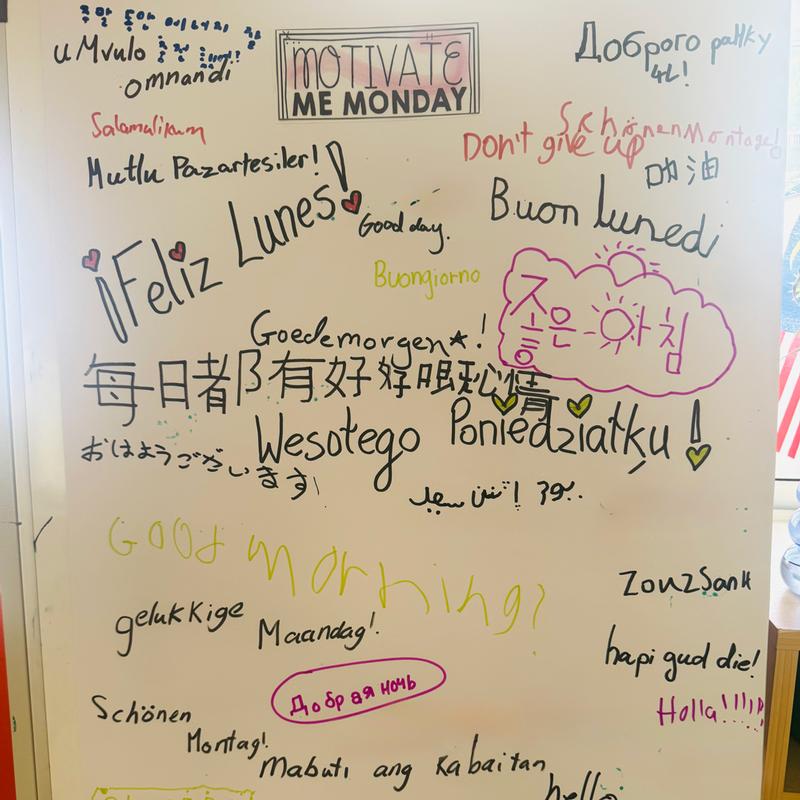 주말 동안
uMvulo
omnandi
MOTIVATE
ME MONDAY
Доброго ранку
Salamalikum
Schönen Montage!
Don't give up
加油
Mutlu Pazartesiler!
¡Feliz Lunes!
Good day.
Buon lunedì
Buongiorno
좋은 아침
Goedemorgen★!
每日都有好好眼
Wesotego Poniedziatku!
おはようございます!
Good morning?
ZouzSank
gelukkige
Maandag!
hapi gud die!
Добрая ночь
Holla!!!!!
Schönen
Montag!
Mabuti ang Kabaitan
hello